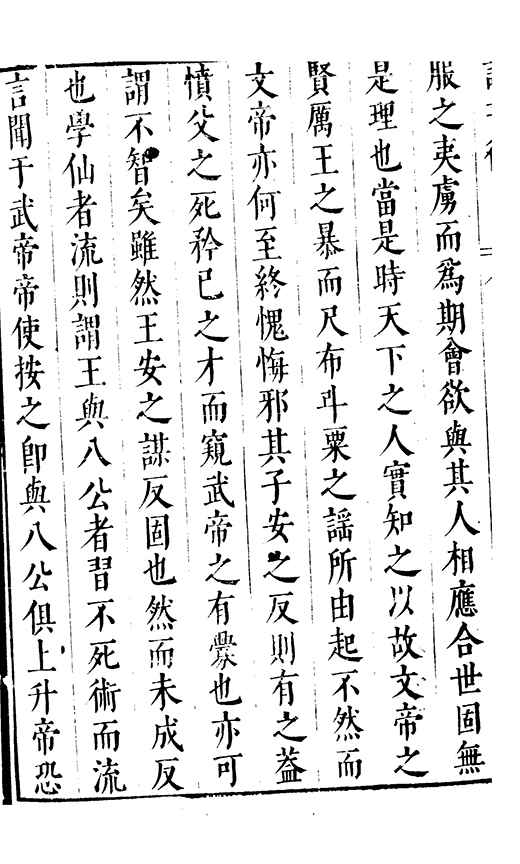 服之夷虜而爲期會欲與其人相應合世固無
是理也當是時天下之人實知之以故文帝之
賢厲王之暴而尺布斗粟之謡所由起不然而
文帝亦何至終愧悔邪其子安之反則有之葢
憤父之死矜已之才而窺武帝之有釁也亦可
謂不智矣雖然王安之謀反固也然而未成反
也學仙者流則謂王與八公者習不死術而流
言聞于武帝帝使按之卽與八公俱上升帝恐